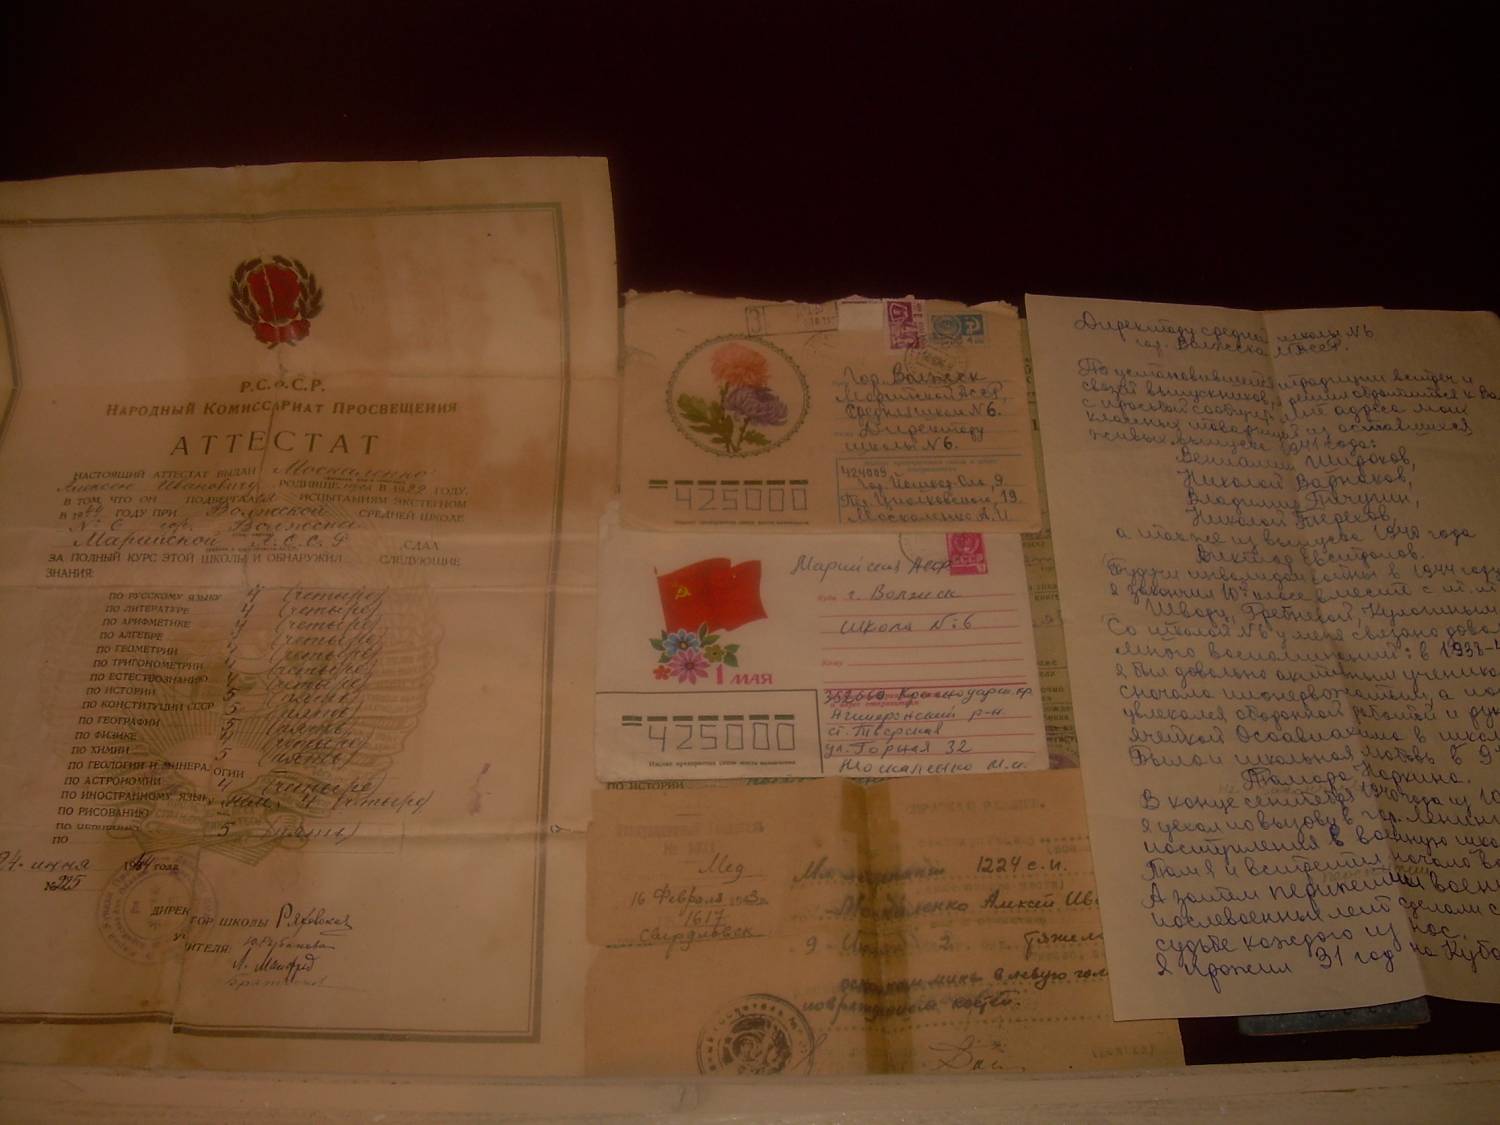 Р.С.Ф.С.Р.
НАРОДНЫЙ КОМИССАРИАТ ПРОСВЕЩЕНИЯ
АТТЕСТАТ
НАСТОЯЩИЙ АТТЕСТАТ ВЫДАН Москаленко
Алексею Ивановичу РОДИВШЕМУСЯ В 1922 ГОДУ,
В ТОМ, ЧТО ОН ПОДВЕРГАЛСЯ ИСПЫТАНИЯМ ЭКСТЕРНОМ
В 1944 ГОДУ ПРИ Волжской СРЕДНЕЙ ШКОЛЕ
№ 6 гор. Волжска
Марийской А.С.С.Р. СДАЛ
ЗА ПОЛНЫЙ КУРС ЭТОЙ ШКОЛЫ И ОБНАРУЖИЛ СЛЕДУЮЩИЕ
ЗНАНИЯ:
ПО РУССКОМУ ЯЗЫКУ 4 (четыре)
ПО ЛИТЕРАТУРЕ 4 (четыре)
ПО АРИФМЕТИКЕ 4 (четыре)
ПО АЛГЕБРЕ (четыре)
ПО ГЕОМЕТРИИ (четыре)
ПО ТРИГОНОМЕТРИИ 4 (четыре)
ПО ЕСТЕСТВОЗНАНИЮ 4 (четыре)
ПО ИСТОРИИ 5 (пять)
ПО КОНСТИТУЦИИ СССР 5 (пять)
ПО ГЕОГРАФИИ 5 (пять)
ПО ФИЗИКЕ 4 (четыре)
ПО ХИМИИ 5 (пять)
ПО ГЕОЛОГИИ И МИНЕРАЛОГИИ
ПО АСТРОНОМИИ 4 (четыре)
ПО ИНОСТРАННОМУ ЯЗЫКУ нем. 4 (четыре)
ПО РИСОВАНИЮ
ПО ЧЕРЧЕНИЮ 5 (пять)
ПО
24 июня 1944 года
№ 225
ДИРЕКТОР ШКОЛЫ
УЧИТЕЛЯ:
Гор. Волжск
Марийской АССР,
Средняя школа №6.
Директору
школы №6.
424009
Гор. Йошкар-Ола, 9
Циолковского, 19
Москаленко А.И
425000
Марийская АССР
г. Волжск
Школа №6
Кому
1 МАЯ
352660 Краснодарск. кр.
Апшеронский р-н
ст. Тверская
ул. Горная 32
Москаленко
425000
ПО ИСТОРИИ
Мед
16 Февраля 1943
1617
Свердловск
1224 с.п.
Москаленко Алексей Ив
9 Июля 2. тяжел
осколком мины в левую гол
повреждением костей.
Директору средней школы №6
гор. Волжска МАССР.
По установившейся традиции встреч и
связей выпускников, решил обратиться к Ва
с просьбой сообщить мне адреса моих
классных товарищей из оставшихся
живых выпуска 1941 года:
Вениамин Широков,
Николай Варнаков,
Владимир Пичугин,
Николай Терехов,
а также из выпуска 1940 года
Виктор Евстропов.
Будучи инвалидом войны в 1944 году
я закончил 10й класс вместе с
Со школой №6 у меня связано довол
много воспоминаний: в 1938-4
я был довольно активным ученико
сначала пионервожатым, а пот
увлекся оборонной работой и рук
ячейкой Осоавиахима в школ
Была и школьная любовь в 9
Тамара Норкина.
В конце сентября 1940 года из 10
я уехал по вызову в гор. Ленинг
поступления в военную шко
Там я и встретил начало во
А затем перипетии воен
послевоенных лет сделали с
судьбе каждого из нас.
Я прожил 31 год на Куба